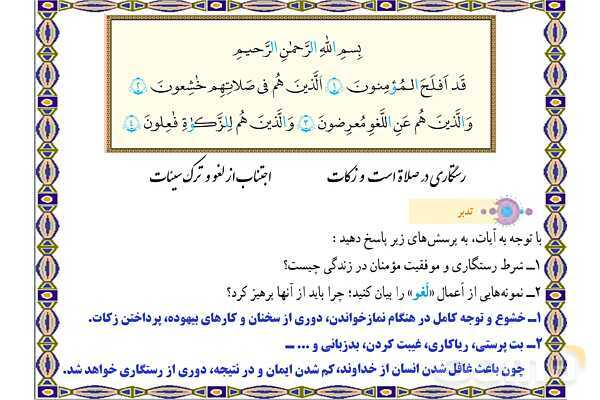 بِسمِ اللّٰهِ الرَّحمٰنِ الرَّحیمِ
قَد اَفلَحَ المُؤمِنونَ ١ اَلَّذینَ هُم فی صَلاتِهِم خٰشِعونَ ٢
وَ الَّذینَ هُم عَنِ اللَّغوِ مُعرِضونَ ٣ وَ الَّذینَ هُم لِلزَّکوٰةِ فٰعِلونَ ٤
رستگاری در صلاة است و زکات اجتناب از لغو و ترک سیئات
تدبر
با توجه به آیات، به پرسش‌های زیر پاسخ دهید :
١ــ شرط رستگاری و موفقیت مؤمنان در زندگی چیست؟
٢ــ نمونه‌هایی از اعمال «لَغو» را بیان کنید؛ چرا باید از آنها پرهیز کرد؟
١ــ خشوع و توجه کامل در هنگام نمازخواندن، دوری از سخنان و کارهای بیهوده، پرداختن زکات.
٢ــ بت پرستی، ریاکاری، غیبت کردن، بدزبانی و ... ــ
چون باعث غافل شدن انسان از خداوند، کم شدن ایمان و در نتیجه، دوری از رستگاری خواهد شد.